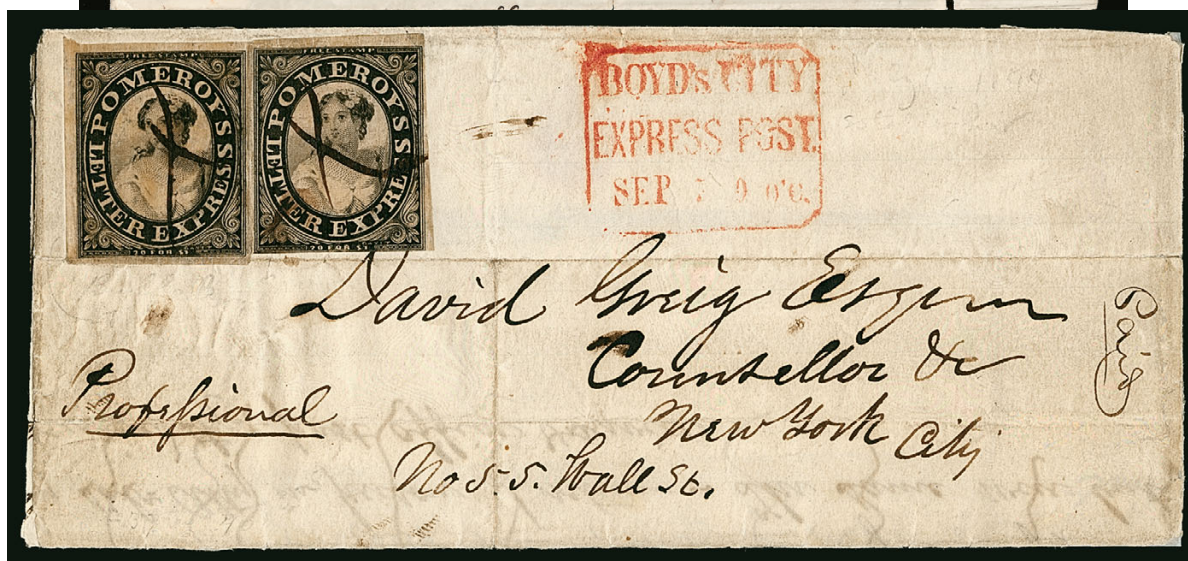 FREE STAMP
POMEROY'S LETTER EXPRESS.
20 FOR $1
FREE STAMP
POMEROY'S LETTER EXPRESS.
20 FOR $1
BOYD's CITY
EXPRESS POST.
SEP 7 9 o'c.
David Greig Esqr
Counsellor &c
New York City
No 55. Wall St.
Professional
Paid